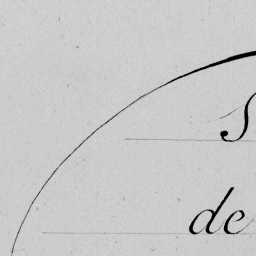 S
de